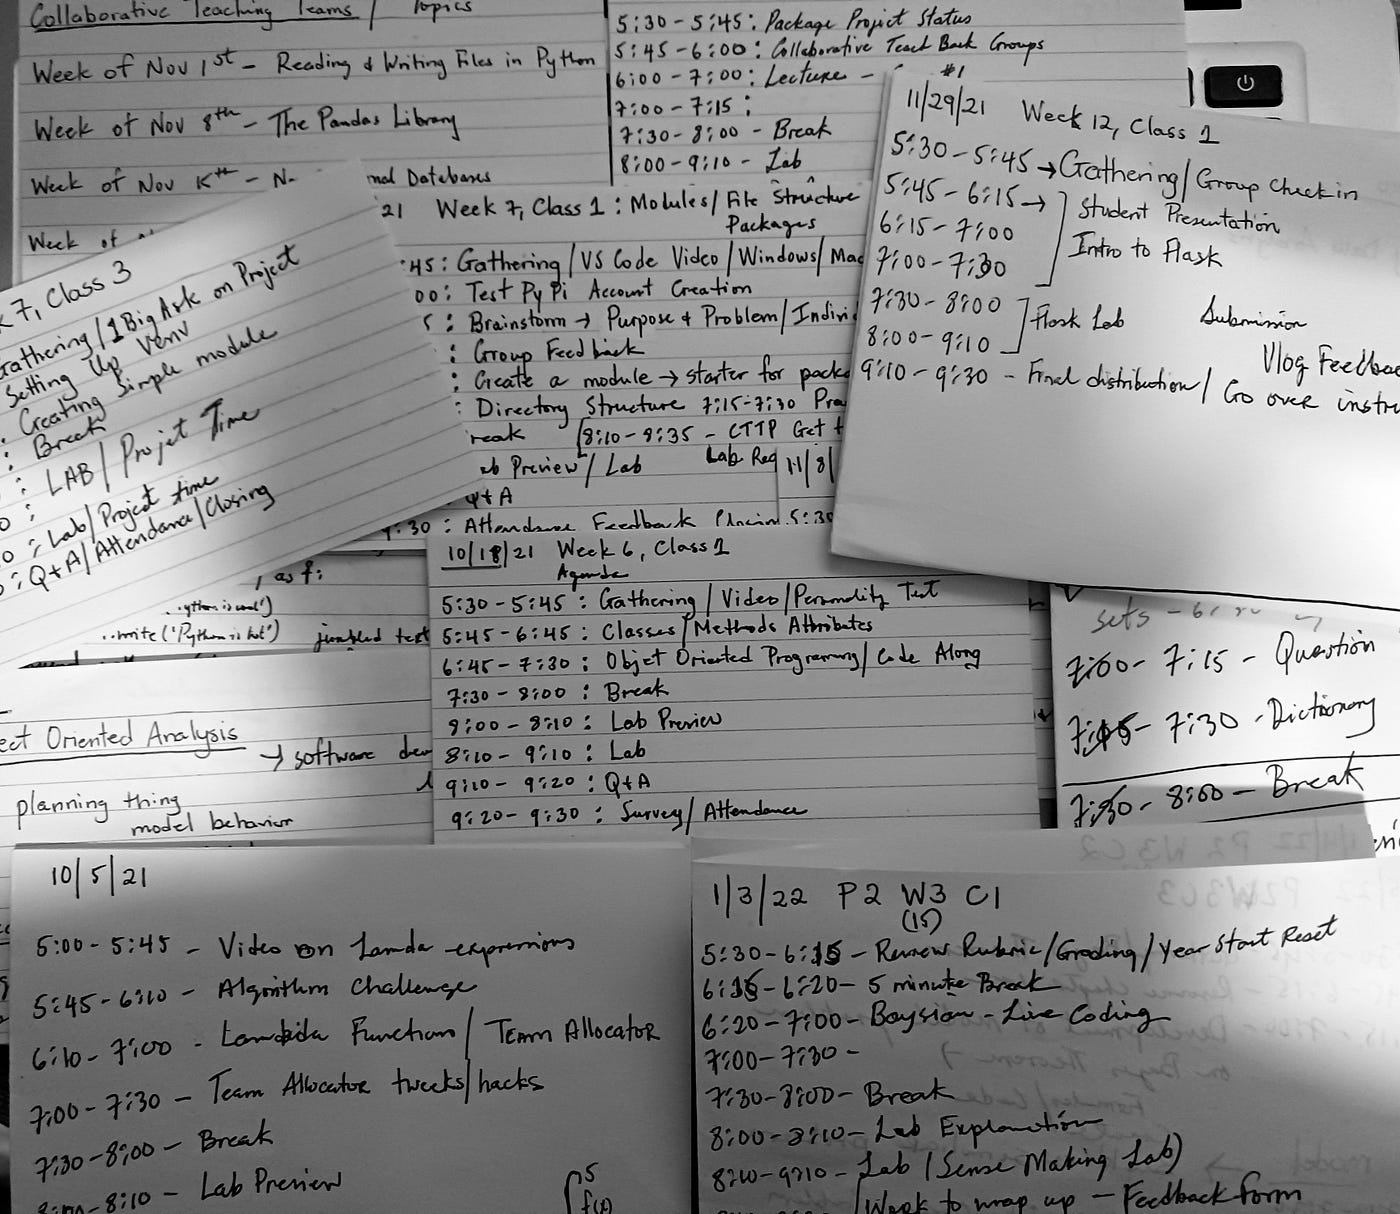 Collaborative Teaching Teams / Topics
Week of Nov 1st - Reading & Writing Files in Python
Week of Nov 8th - The Pandas Library
Week of Nov
Databases
Week of
5:30 - 5:45 : Package Project Status
5:45 - 6:00 : Collaborative Teach Back Groups
6:00 - 7:00 : Lecture - #1
7:00 - 7:15 :
7:30 - 8:00 - Break
8:00 - 9:10 - Lab
11/29/21 Week 12, Class 1
5:30 - 5:45 → Gathering / Group Check in
5:45 - 6:15 → Student Presentation
6:15 - 7:00
7:00 - 7:30 Intro to Flask
7:30 - 8:00
8:00 - 9:10 Flask Lab
Submission
Vlog
9:10 - 9:30 - Final distribution / Go over
21 Week 7, Class 1 : Modules / File Structure
Packages
:45 : Gathering / VS Code Video / Windows / Mac
00 : Test PyPi Account Creation
: Brainstorm → Purpose & Problem /
: Group Feedback
: Create a module → starter for
: Directory Structure 7:15-7:30
8:10 - 8:35 - CTTP Get
Preview / Lab
Lab
11/8/
Q+A
:30 : Attendance Feedback
5:30
7, Class 3
Gathering / 1 Big Ask on Project
Setting Up venv
: Creating Simple module
: Break
: LAB / Projet Time
: Lab / Project time
: Q+A / Attendance / Closing
, as f:
write('Python is hot')
jumbled text
10/18/21 Week 6, Class 1
Agenda
5:30 - 5:45 : Gathering / Video / Personality Test
5:45 - 6:45 : Classes / Methods Attributes
6:45 - 7:30 : Objet Oriented Programing / Code Along
7:30 - 8:00 : Break
8:00 - 8:10 : Lab Preview
8:10 - 9:10 : Lab
9:10 - 9:20 : Q+A
9:20 - 9:30 : Survey / Attendance
sets -
7:00 - 7:15 - Question
7:15 - 7:30 - Dictionary
7:30 - 8:00 - Break
ect Oriented Analysis
→ software
planning thing
model behavior
10/5/21
5:00 - 5:45 - Video on Lamda expressions
5:45 - 6:10 - Algorithm Challenge
6:10 - 7:00 - Lambda Function / Team Allocator
7:00 - 7:30 - Team Allocator tweeks / hacks
7:30 - 8:00 - Break
8:10 - Lab Preview
1/3/22 P2 W3 C1
(15)
5:30 - 6:15 - Review Rubric / Grading / Year Start Reset
6:15 - 6:20 - 5 minute Break
6:20 - 7:00 - Baysian - Live Coding
7:00 - 7:30 -
7:30 - 8:00 - Break
8:00 - 8:10 - Lab Explanation
8:10 - 9:10 - Lab (Sense Making Lab)
Week to wrap up - Feedback form